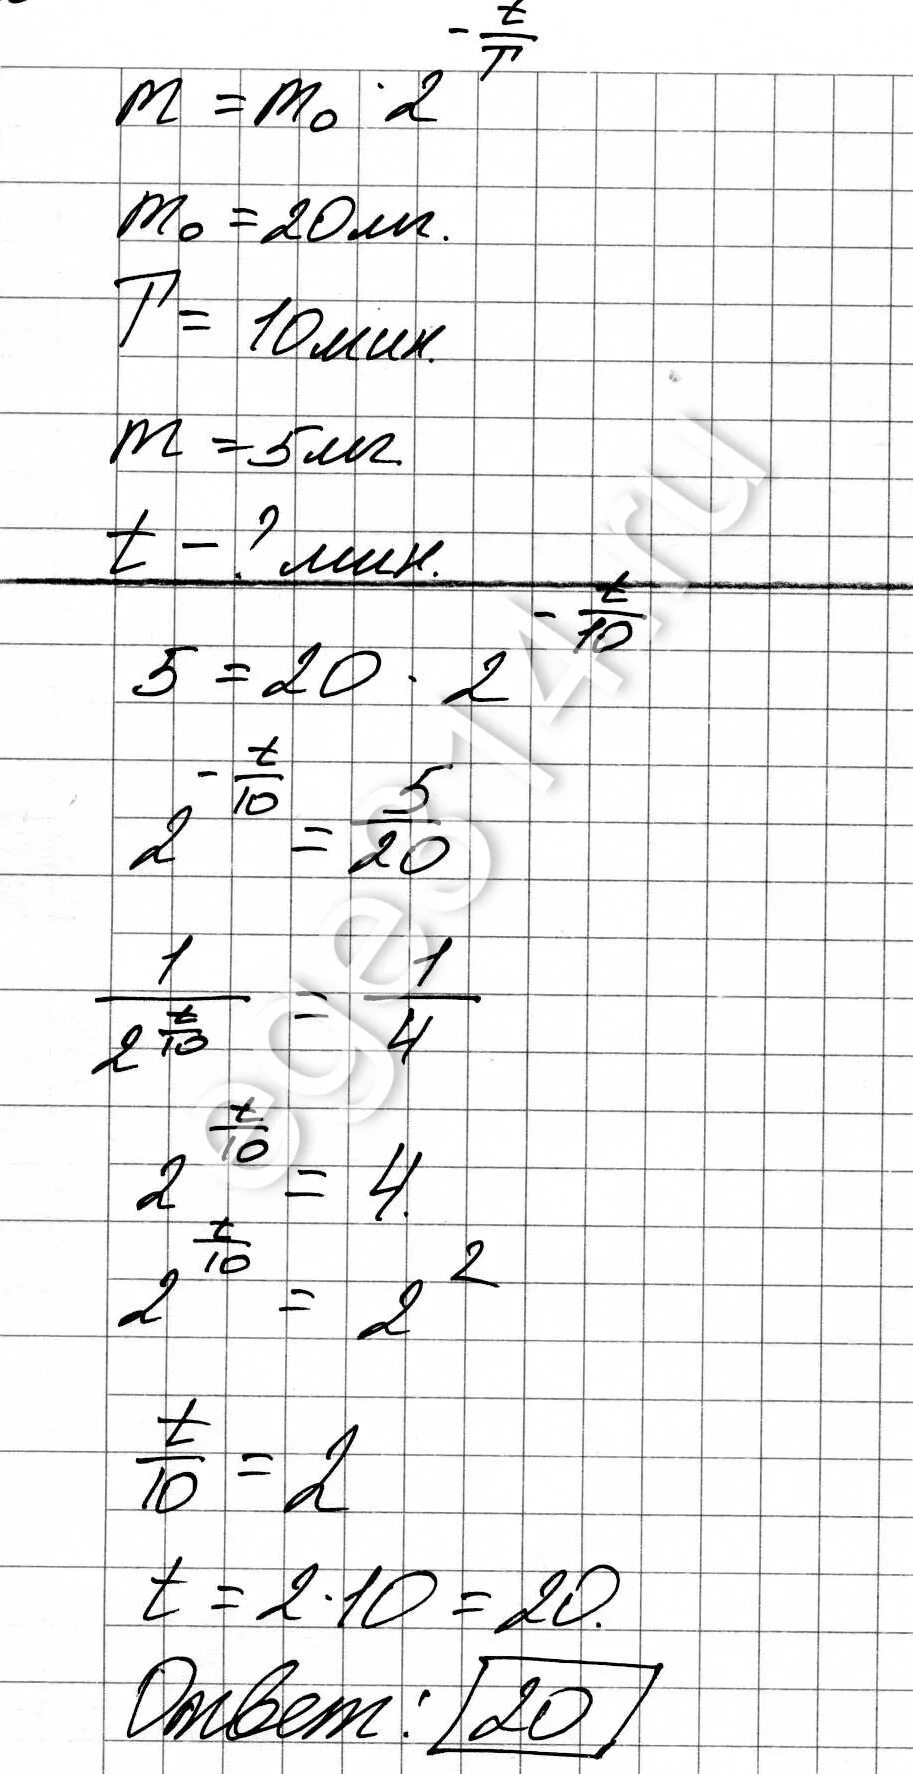 m = m₀ · 2^(-t/T)
m₀ = 20 мг.
T = 10 мин.
m = 5 мг.
t - ? мин.
5 = 20 · 2^(-t/10)
2^(-t/10) = 5/20
1/2^(t/10) = 1/4
2^(t/10) = 4.
2^(t/10) = 2^2
t/10 = 2
t = 2·10 = 20.
Ответ: 20
ege314.ru